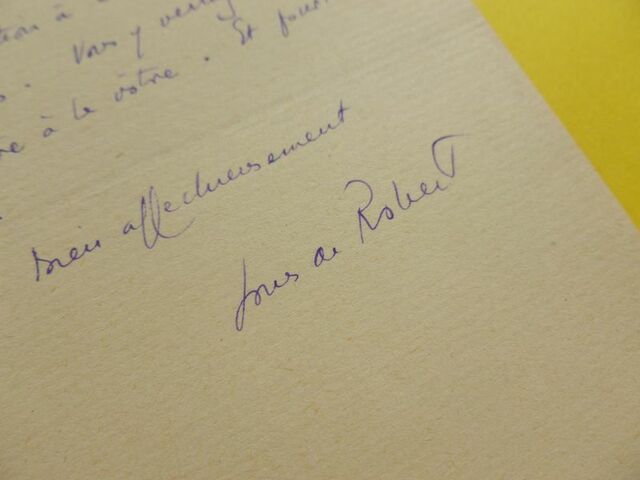 à
Vous y verrez
à la vôtre. Et pour
bien affectueusement
Louis de Robert